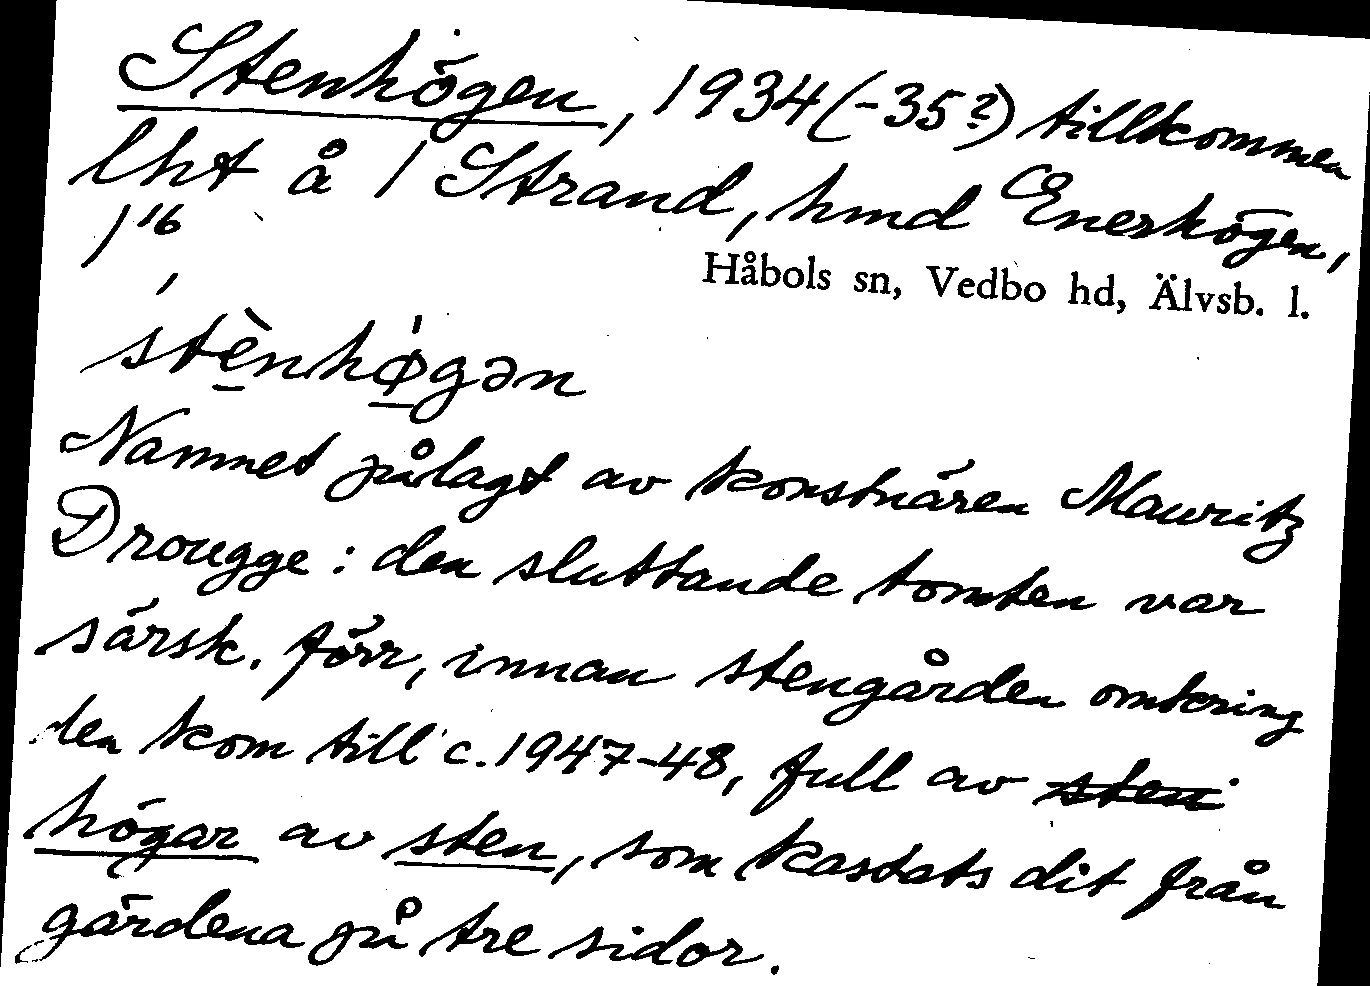 Stenhögen, 1934(-35?) tillkommen
lht å 1 Strand, hmd Enerhögen,
1/16
Håbols sn, Vedbo hd, Älvsb. l.
stènhø̀gən
Namnet pålagt av konstnären Mauritz
Drougge: den sluttande tomten var
särsk. förr, innan stengården omkring
den kom till c. 1947-48, full av sten
högar av sten, som kastats dit från
gärdena på tre sidor.